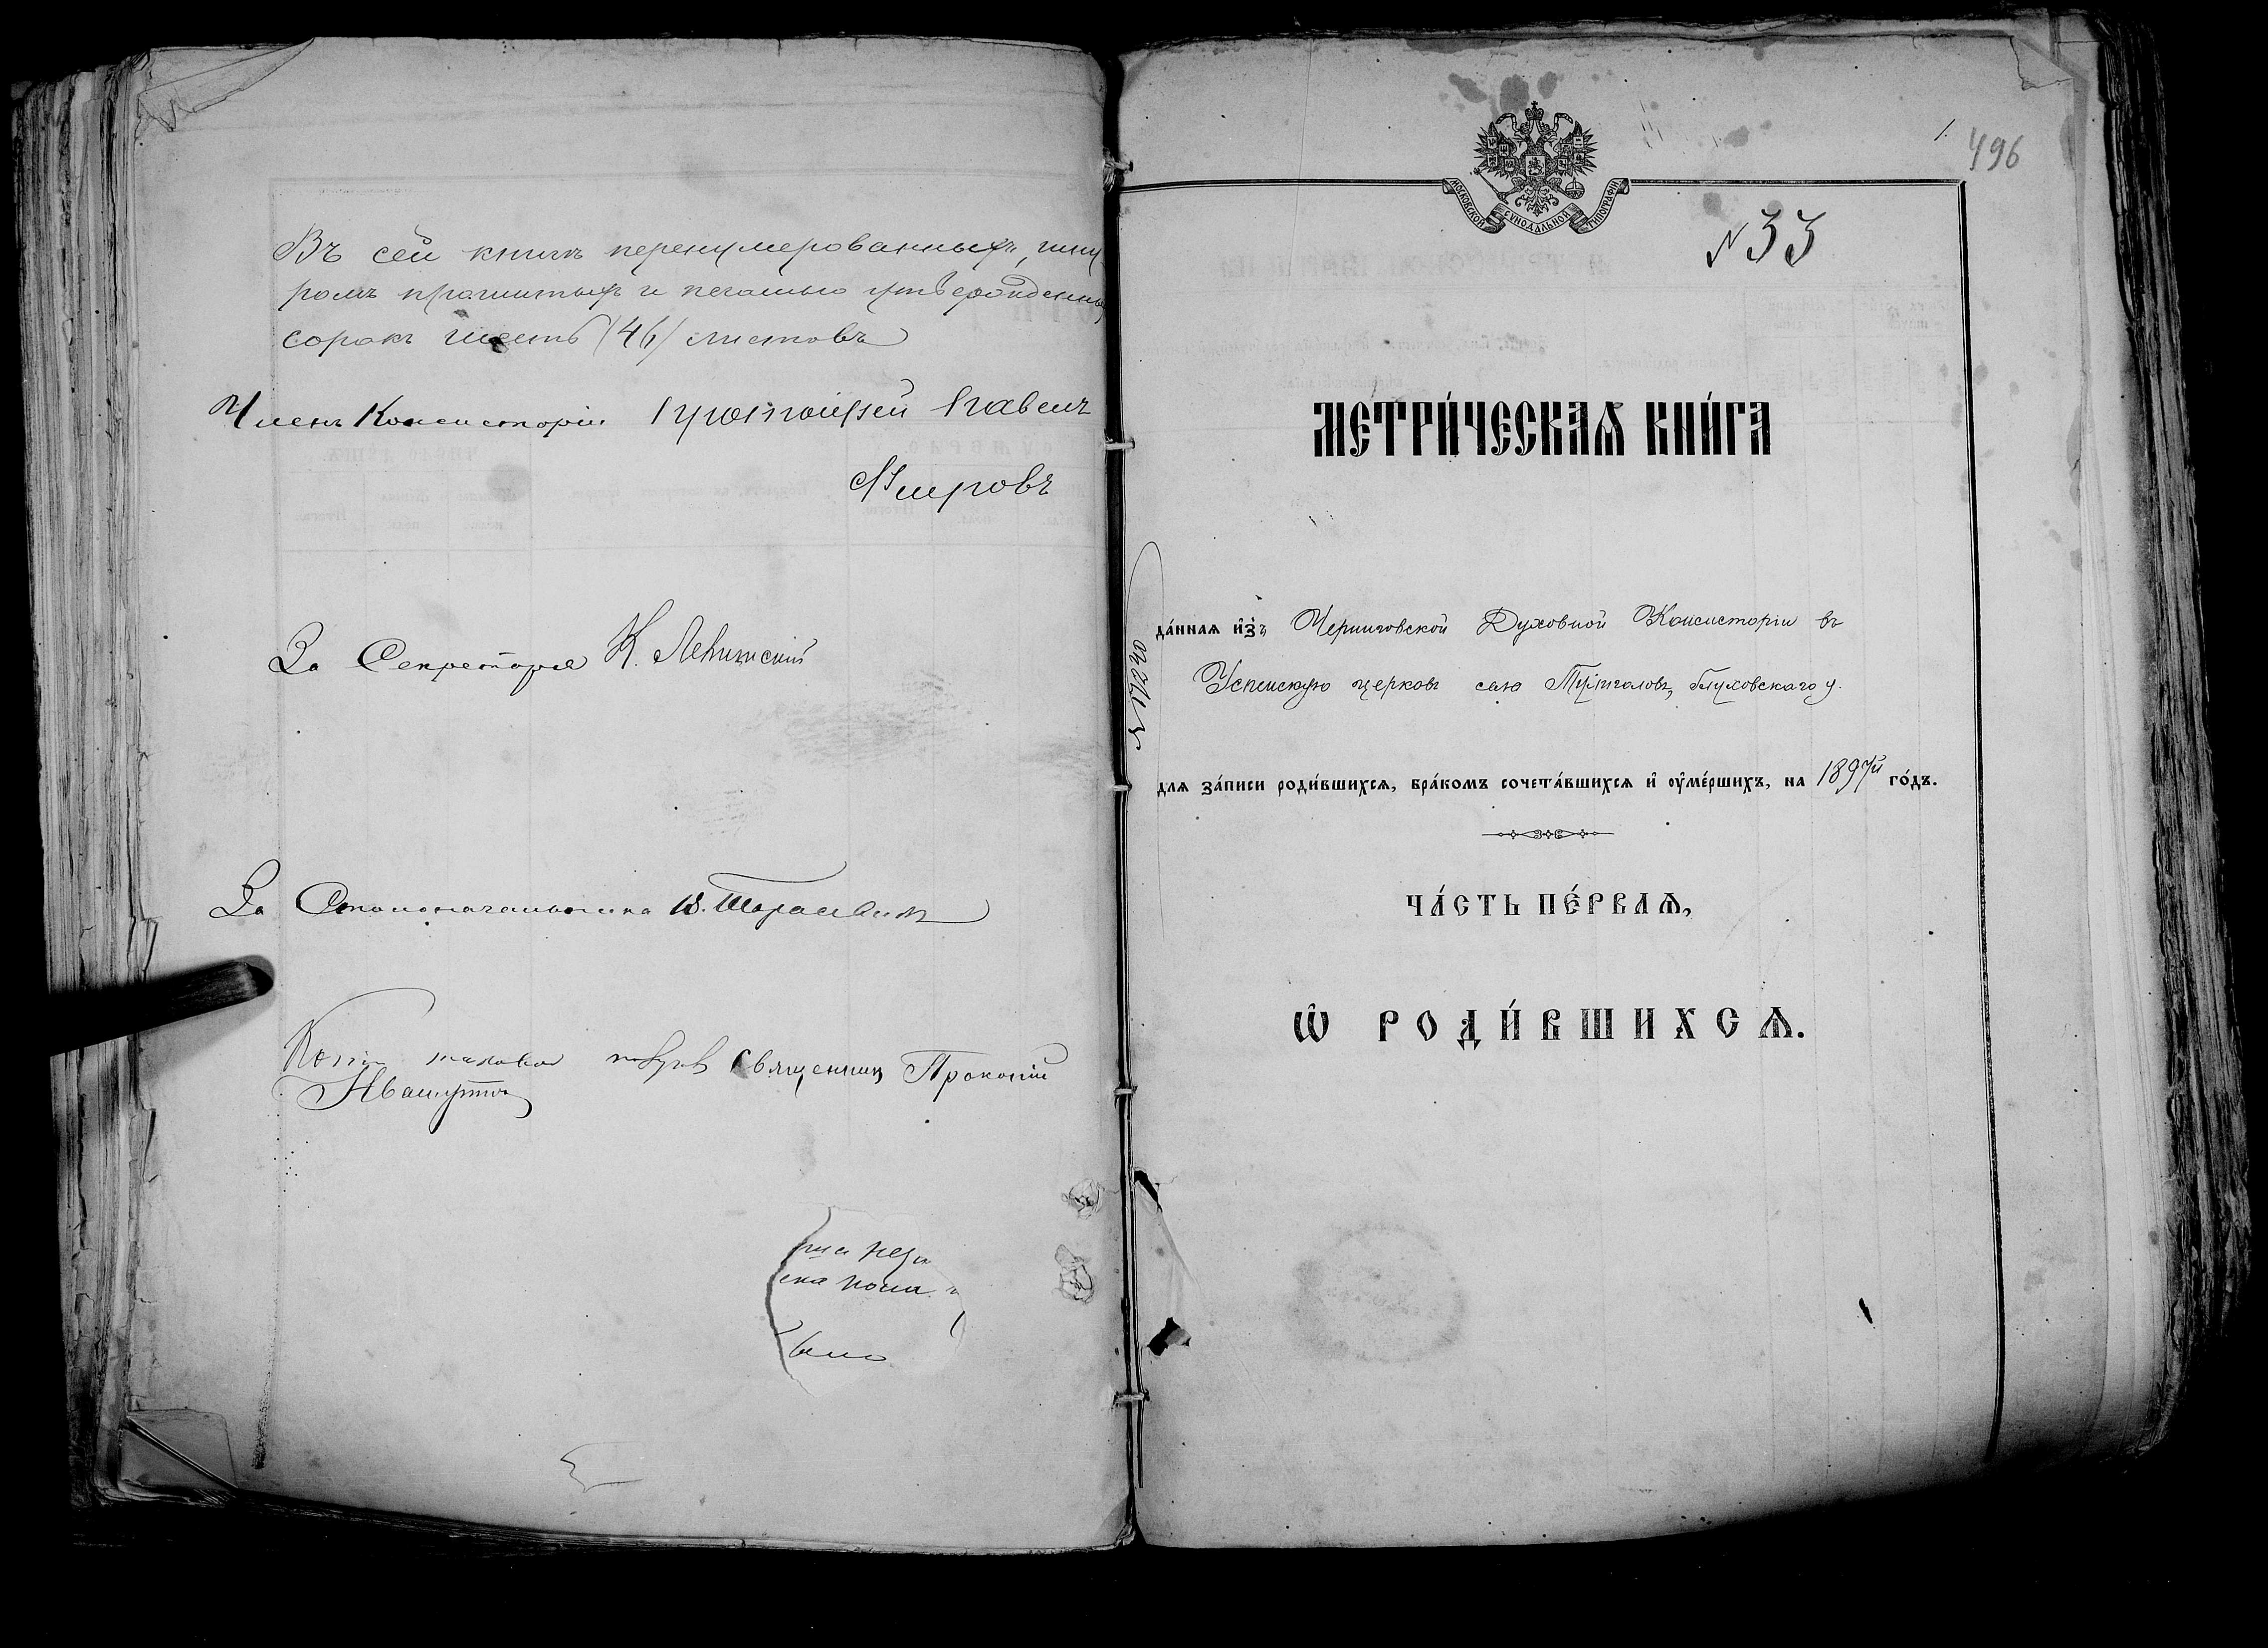 Въ сей книгѣ перенумерованныхъ, шну
ромъ прошитыхъ и печатью утвержденныхъ
сорокъ шесть (46) листовъ
Членъ Консисторіи Протоіерей Павелъ
За Секретаря К.
За Столоначальника
Копію таковой Священникъ Прокопій
ена
1.
496
МОСКОВСКОЙ СѴНОДАЛЬНОЙ ТИПОГРАФІИ
№ 33
МЕТРИ́ЧЕСКАѦ КНИ́ГА
да́ннаѧ и҆́зъ Черниговской Духовной Консисторіи въ
Успенскую церковь села Тулиголовъ, Глуховскаго у.
длѧ за́писи роди́вшихсѧ, бра́комъ сочета́вшихсѧ и҆ ᲂу҆ме́ршихъ, на 1897й го́дъ.
ЧА́СТЬ ПЕ́РВАѦ,
Ѽ РОДИ́ВШИХСѦ.